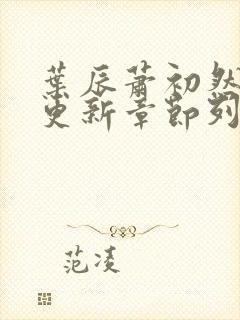 葉辰蕭初然
更新章節列
范凌